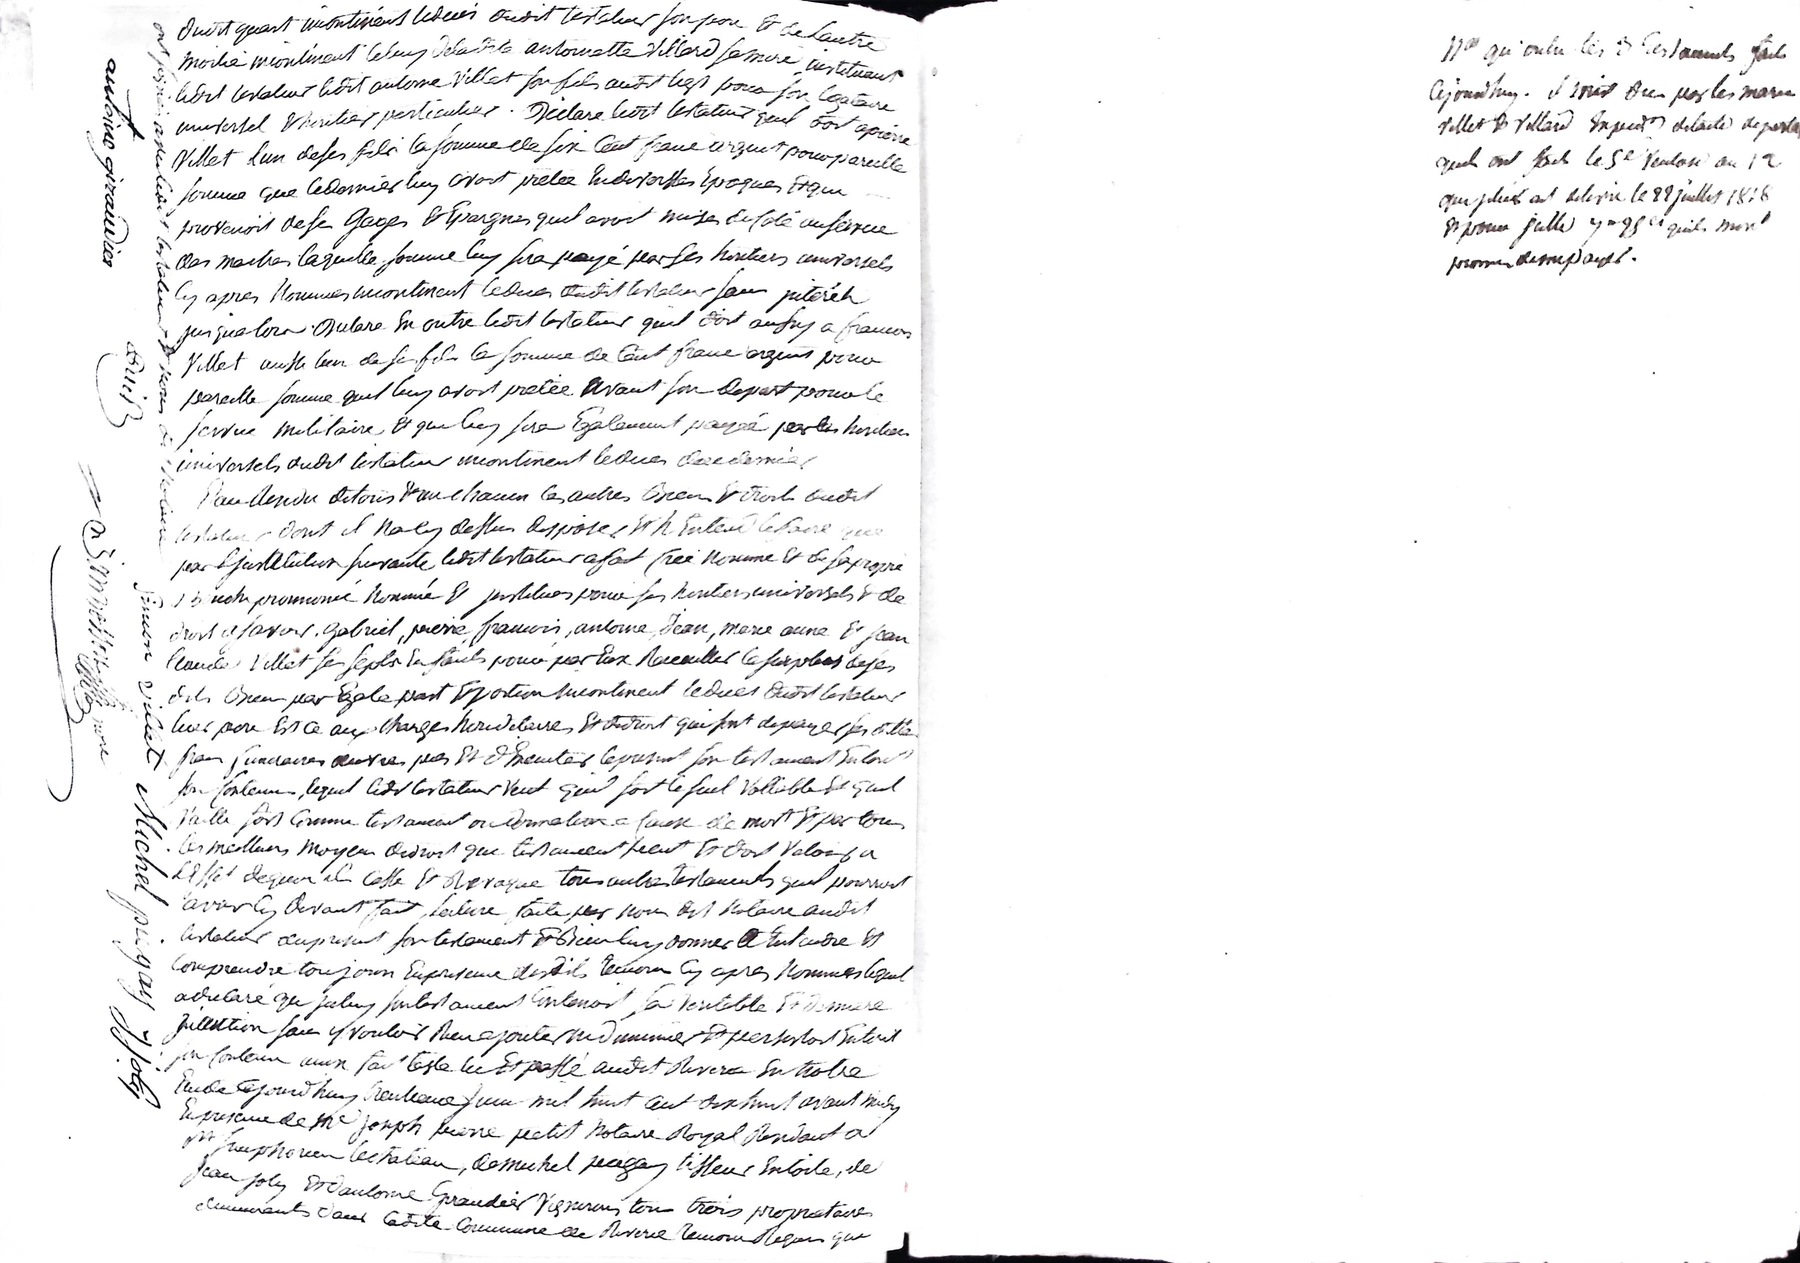 dudit quart incontinent le deces dudit testateur son pere Et de l'autre
moitié incontinent le deces de ladite antoinette Villard sa mere instituant
ledit testateur ledit antoine Villet son fils audit legs pour son legataire
universel & heritier particulier. Declare ledit testateur quil doit a pierre
Villet l'un de ses fils la somme de six Cent franc argent pour pareille
somme que ce dernier luy avoit pretée En diverses Epoques Et qui
provenoit de ses Gages Et Epargnes quil avoit mises de coté au service
des maitres laquelle somme luy sera payé par ses heritiers universels
Cy apres Nommes incontinent le deces dudit testateur sans jnteréts
jusqualors. Declare En outre ledit testateur quil doit aussy a francois
Villet aussi l'un de ses fils la somme de Cent franc argent pour
pareille somme quil luy avoit pretée avant son depart pour le
service militaire Et qui luy sera Egalement payée par les heritiers
universels dudit testateur incontinent le deces de ce dernier
Et au Residu de tous Et un chacun les autres Biens Et droits dudit
testateur dont il Na Cy dessus disposé, Et N'Entend le faire que
par l'jnstitution suivante ledit testateur a fait Creé Nommé Et de sa propre
Bouche prononcé Nommé Et jnstitues pour ses heritiers universels & de
droit a savoir. Gabriel, pierre, francois, antoine, Jean, marie anne Et jean
Claude Villet ses sept Enfants pour par Eux Recueillir le surplus de ses
dits Biens par Egale part Et portion incontinent le deces dudit testateur
leur pere Est ce aux charges hereditaires Et de droit qui sont de payer ses dettes
frais funeraires œuvres pies Et d'Executer le present son testament En tout
son Contenu, lequel ledit testateur Veut quil soit le seul Vallable Et quil
Vaille soit Comme testament ou donnation a Cause de mort Et par tous
les meilleurs moyens de droit que testament peut Et doit Valoir, a
L'Effet de quoi il Casse Et Revoque tous autres testaments quil pourroit
avoir Cy devant fait, lecture faite par Nous dit Notaire audit
testateur du present son testament Et Bien luy donner a Entendre Et
Comprendre toujours En presence desdits temoins Cy apres Nommes lequel
a declaré que son testament Contenoit sa Veritable Et derniere
jntention sans y vouloir Rien ajouter ni diminuer Et persistoit En tout
son Contenu ainsi fait testé lu Et passé audit Riverie En Notre
Etude Cejourd'huy trentieme juin mil huit cent dix huit avant midy
En presence de Me joseph pierre petit Notaire Royal Residant a
St Simphorien le chateau, de michel pugay tisseur En toile, de
Jean joly Et d'antoine Giraudier Vignerons tous trois proprietaires
demeurants dans ladite Commune de Riverie temoins Requis qui
ont signé avec ledit testateur & Nous dit Notaire
Simon villet Michel pugay J joly
antoine giraudier
petit
Nta qu'outre les 2 testaments faits
Cejourdhuy. il m'est du par les mariés
Villet & Villard Expedon de l'acte de partage
quils ont fait le 5e Ventose an 12
que je leur ai delivré le 22 juillet 1818
Et pour jcelle 7 f 95 c quils m'ont
promis de me payer.